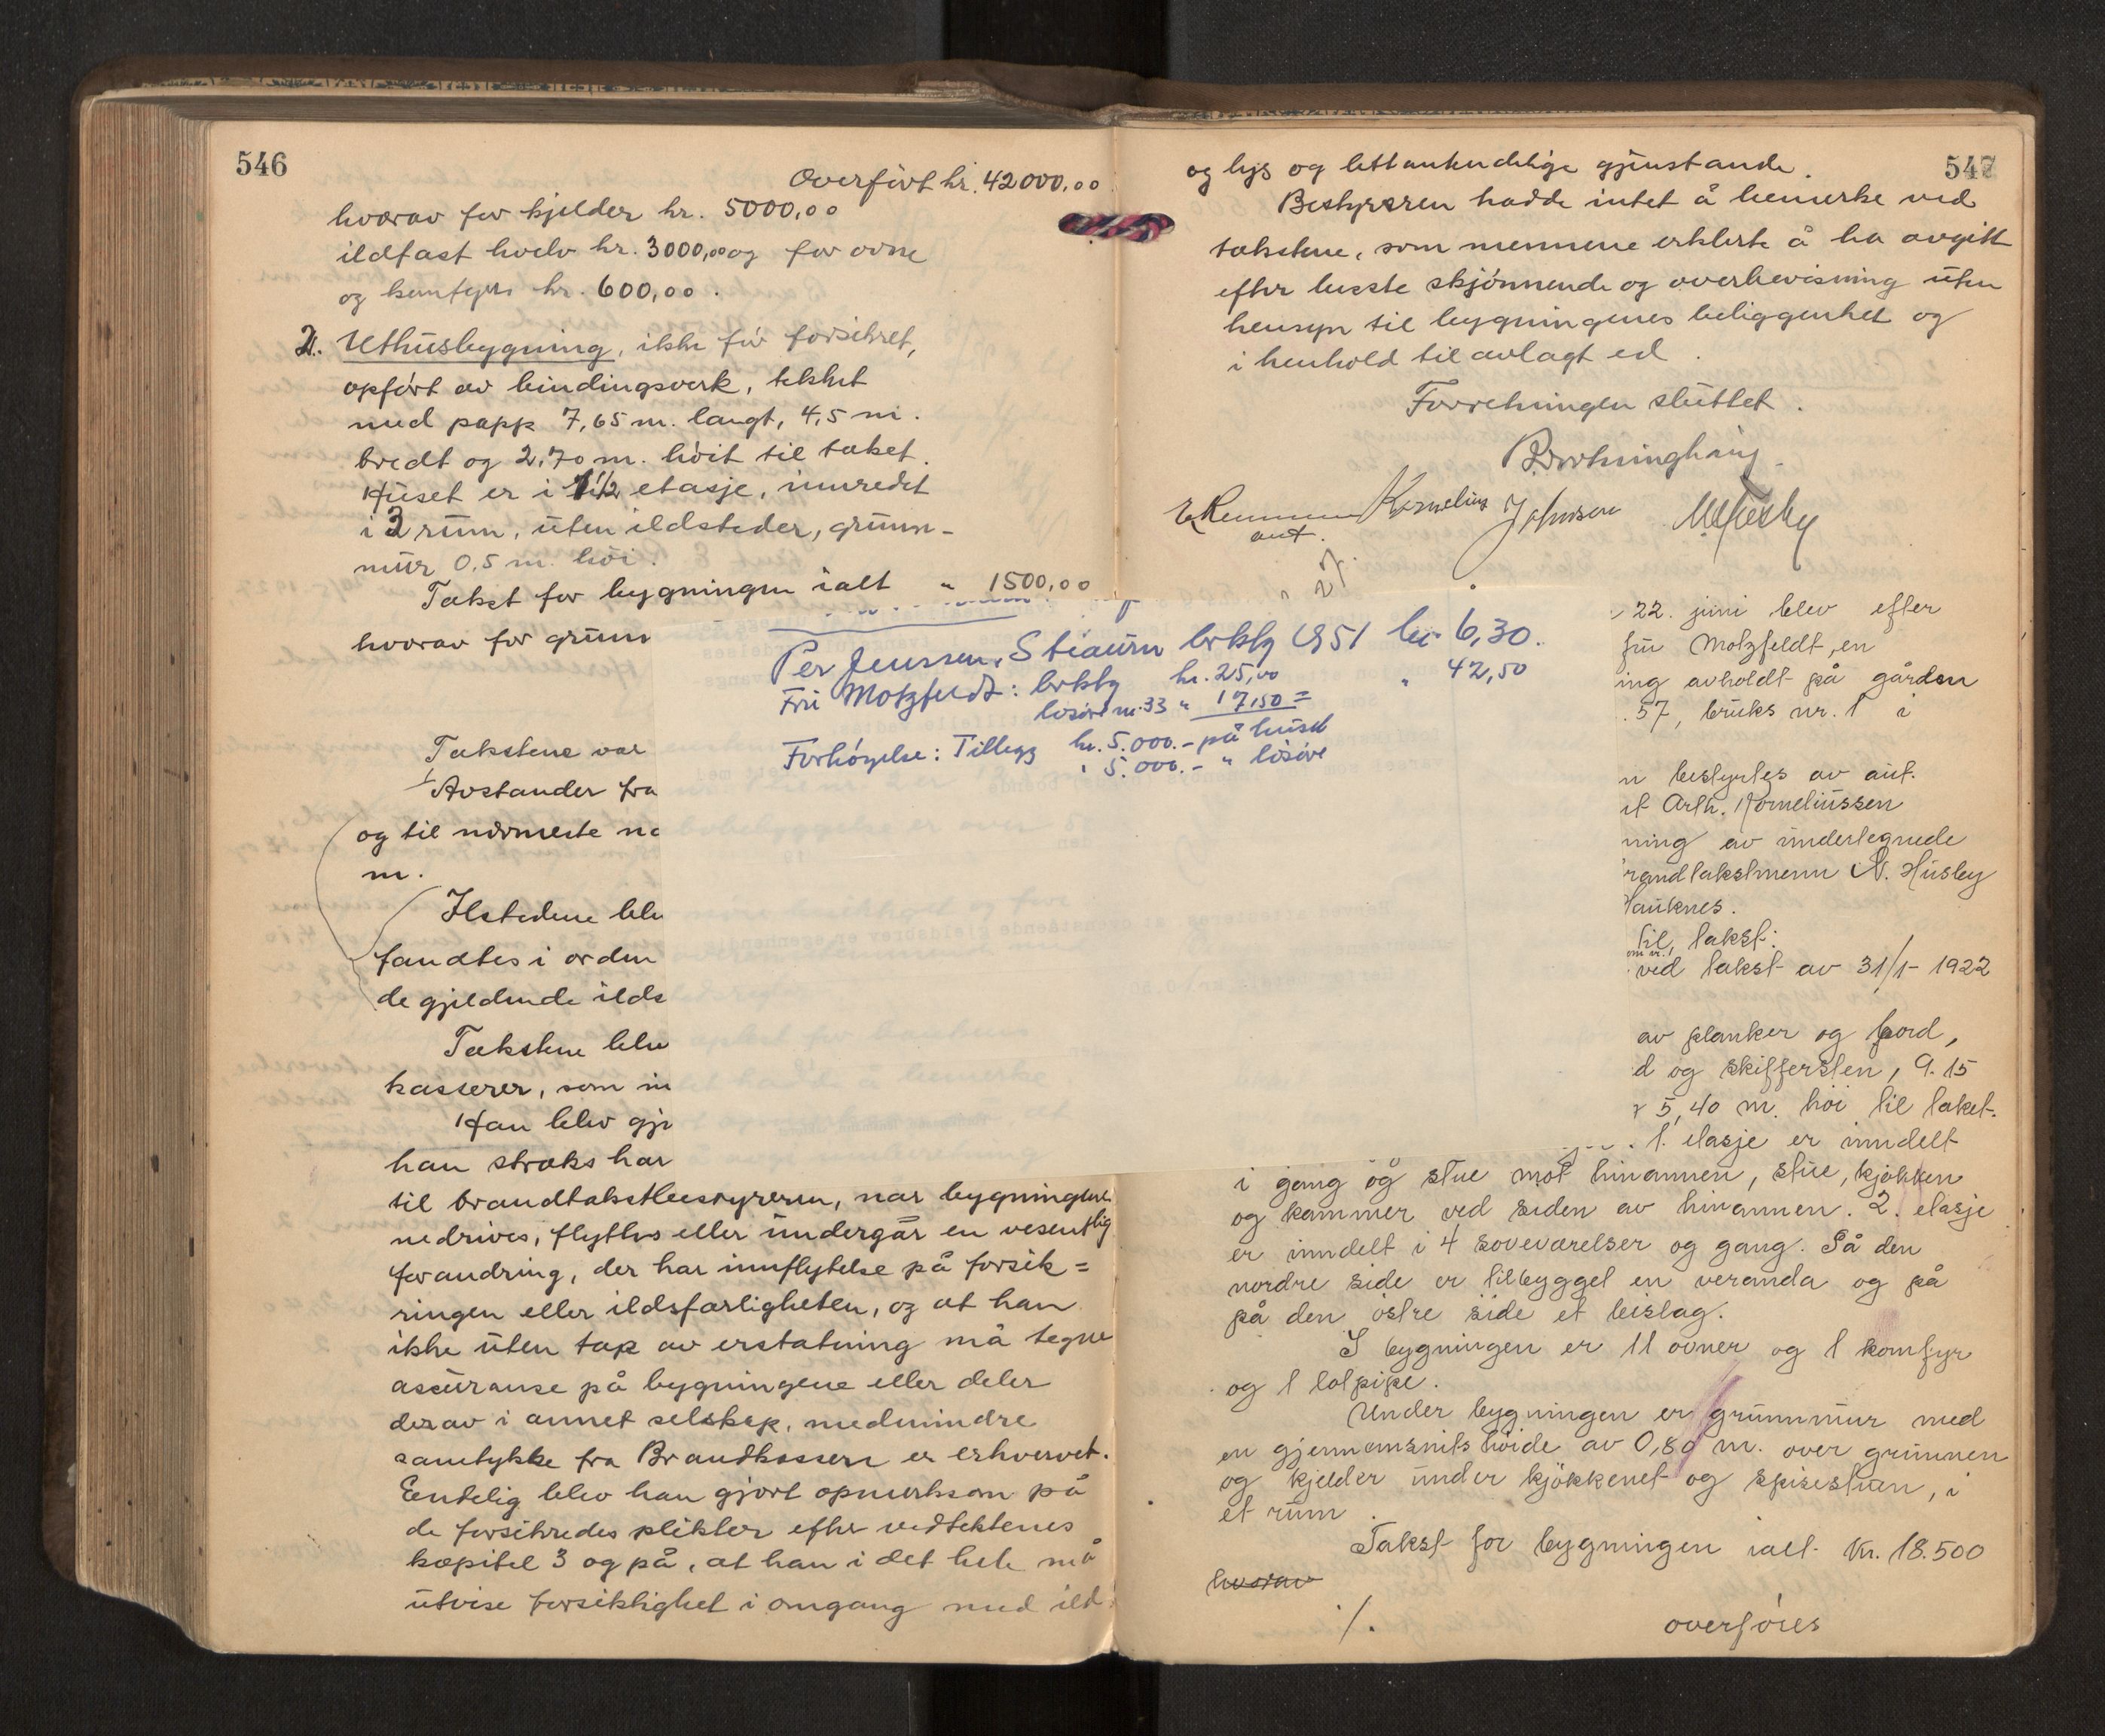 546
Overfört kr. 42000,00
hvorav for kjelder kr. 5000,00
ildfast hvelv kr. 3000,00 og for ovne
og komfyrs kr. 600,00.
2. Uthusbygning, ikke för forsikret,
opfört av bindingsverk, tekket
med papp 7,65 m. langt, 4,5 m.
bredt og 2,70 m. höit til taket.
Huset er i 1 1/2 etasje, innredet
i 3 rum, uten ildsteder, grunn-
mur 0,5 m. höi.
Takst for bygningen ialt " 1500,00
hvorav for grunn
Takstene var
Avstander fra
og til nærmeste na
m.
Ilstedene blev
fandtes i orden
de gjeldende ilds
Takstene blev
kasserer, som in
Han blev gjo
han straks har
til brandtakstbestyreren, nar bygningene
nedrives, flyttes eller undergår en vesentlig
forandring, der har innflytelse på forsik=
ringen eller ildsfarligheten, og at han
ikke uten tap av erstatning må tegne
assuranse på bygningene eller deler
derav i annet selskap, medmindre
samtykke fra Brandkassen er erhvervet.
Endelig blev han gjort opmerksom på
de forsikredes plikter efter vedtektenes
kapitel 3 og på, at han i det hele må
utvise forsiktighet i omgang med ild
Per Jenssen, Stiaurn brktg 1951 kr. 6,30.
Fru Motzfeldt: brktg kr. 25,00 " 42,50
lösöre nr. 33 " 17,50 =
Forhöyelse: Tillegg kr. 5.000.- på huset
" 5.000.- " lösöre
547
og lys og lettantendelige gjenstande.
Bestyreren hadde intet å bemerke ved
takstene, som mennene erklerte å ha avgitt
efter beste skjönnende og overbevisning uten
hensyn til bygningenes beliggenhet og
i henhold til avlagt ed.
Forretningen sluttet.
Kornelius Johnsen M. Husby
aut.
22. juni blev efter
fru Motzfeldt, en
ing avholdt på gården
57, bruks nr. 1 i
n bestyrtes av aut.
et Arth. Korneliussen
ning av undertegnede
randtakstmenn N. Husby
Hauknes.
til, takst:
ved takst av 31/1- 1922
av planker og bord,
d og skiffersten, 9.15
r 5,40 m. höi til taket.
1. etasje er inndelt
i gang og stue mot hinannen, stue, kjökken
og kammer ved siden av hinannen. 2. etasje
er inndelt i 4 soveværelser og gang. På den
nordre side er tilbygget en veranda og på
på den östre side et bislag.
I bygningen er 11 ovner og 1 komfyr
og 1 lolpipe.
Under bygningen er grunnmur med
en gjennemsnits höide av 0,80 m. over grunnen
og kjelder under kjökkenet og spisestuen, i
et rum.
Takst for bygningen ialt Kr. 18.500
hvorav
./.
overföres